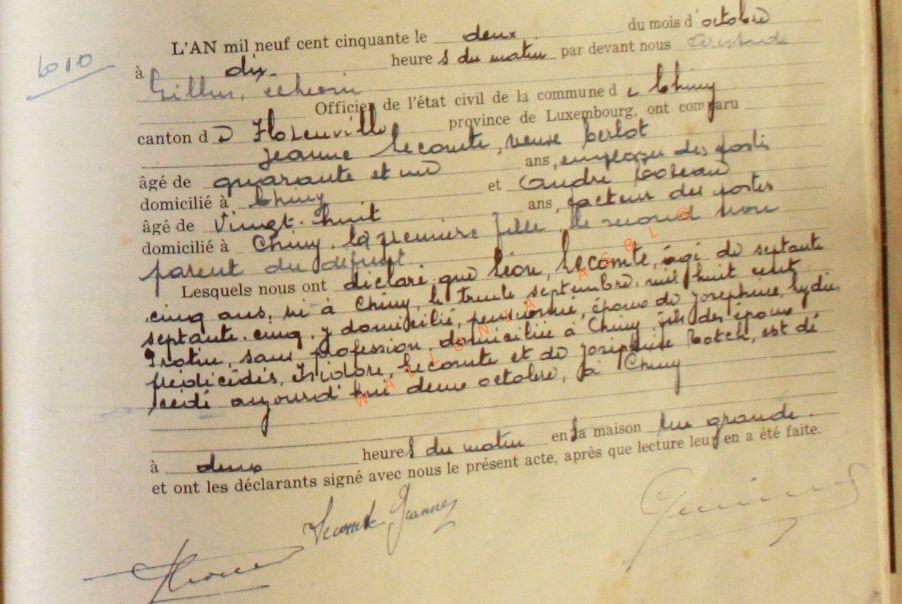 6010
L'AN mil neuf cent cinquante le deux du mois d'octobre
à dix heures du matin par devant nous Aristide
échevin
Officier de l'état civil de la commune de Chiny
canton de Florenville province de Luxembourg, ont comparu
Jeanne Lecomte, veuve
âgé de quarante et un ans, des postes
domicilié à Chiny et André
âgé de vingt-huit ans, facteur des postes
domicilié à Chiny, la première fille, le second non
parent du défunt
Lesquels nous ont déclaré que Léon, Lecomte, âgé de septante
cinq ans, né à Chiny, le trente septembre mil huit cent
septante-cinq, y domicilié, pensionné, époux de Joséphine, Lydie
sans profession, domiciliée à Chiny fils des époux
prédécédés, Isidore, Lecomte et de Joséphine est dé
cédé aujourd'hui deux octobre, à Chiny
à deux heures du matin en sa maison rue grande.
et ont les déclarants signé avec nous le présent acte, après que lecture leur en a été faite.
Lecomte Jeanne
WALLONIA ASBL ©